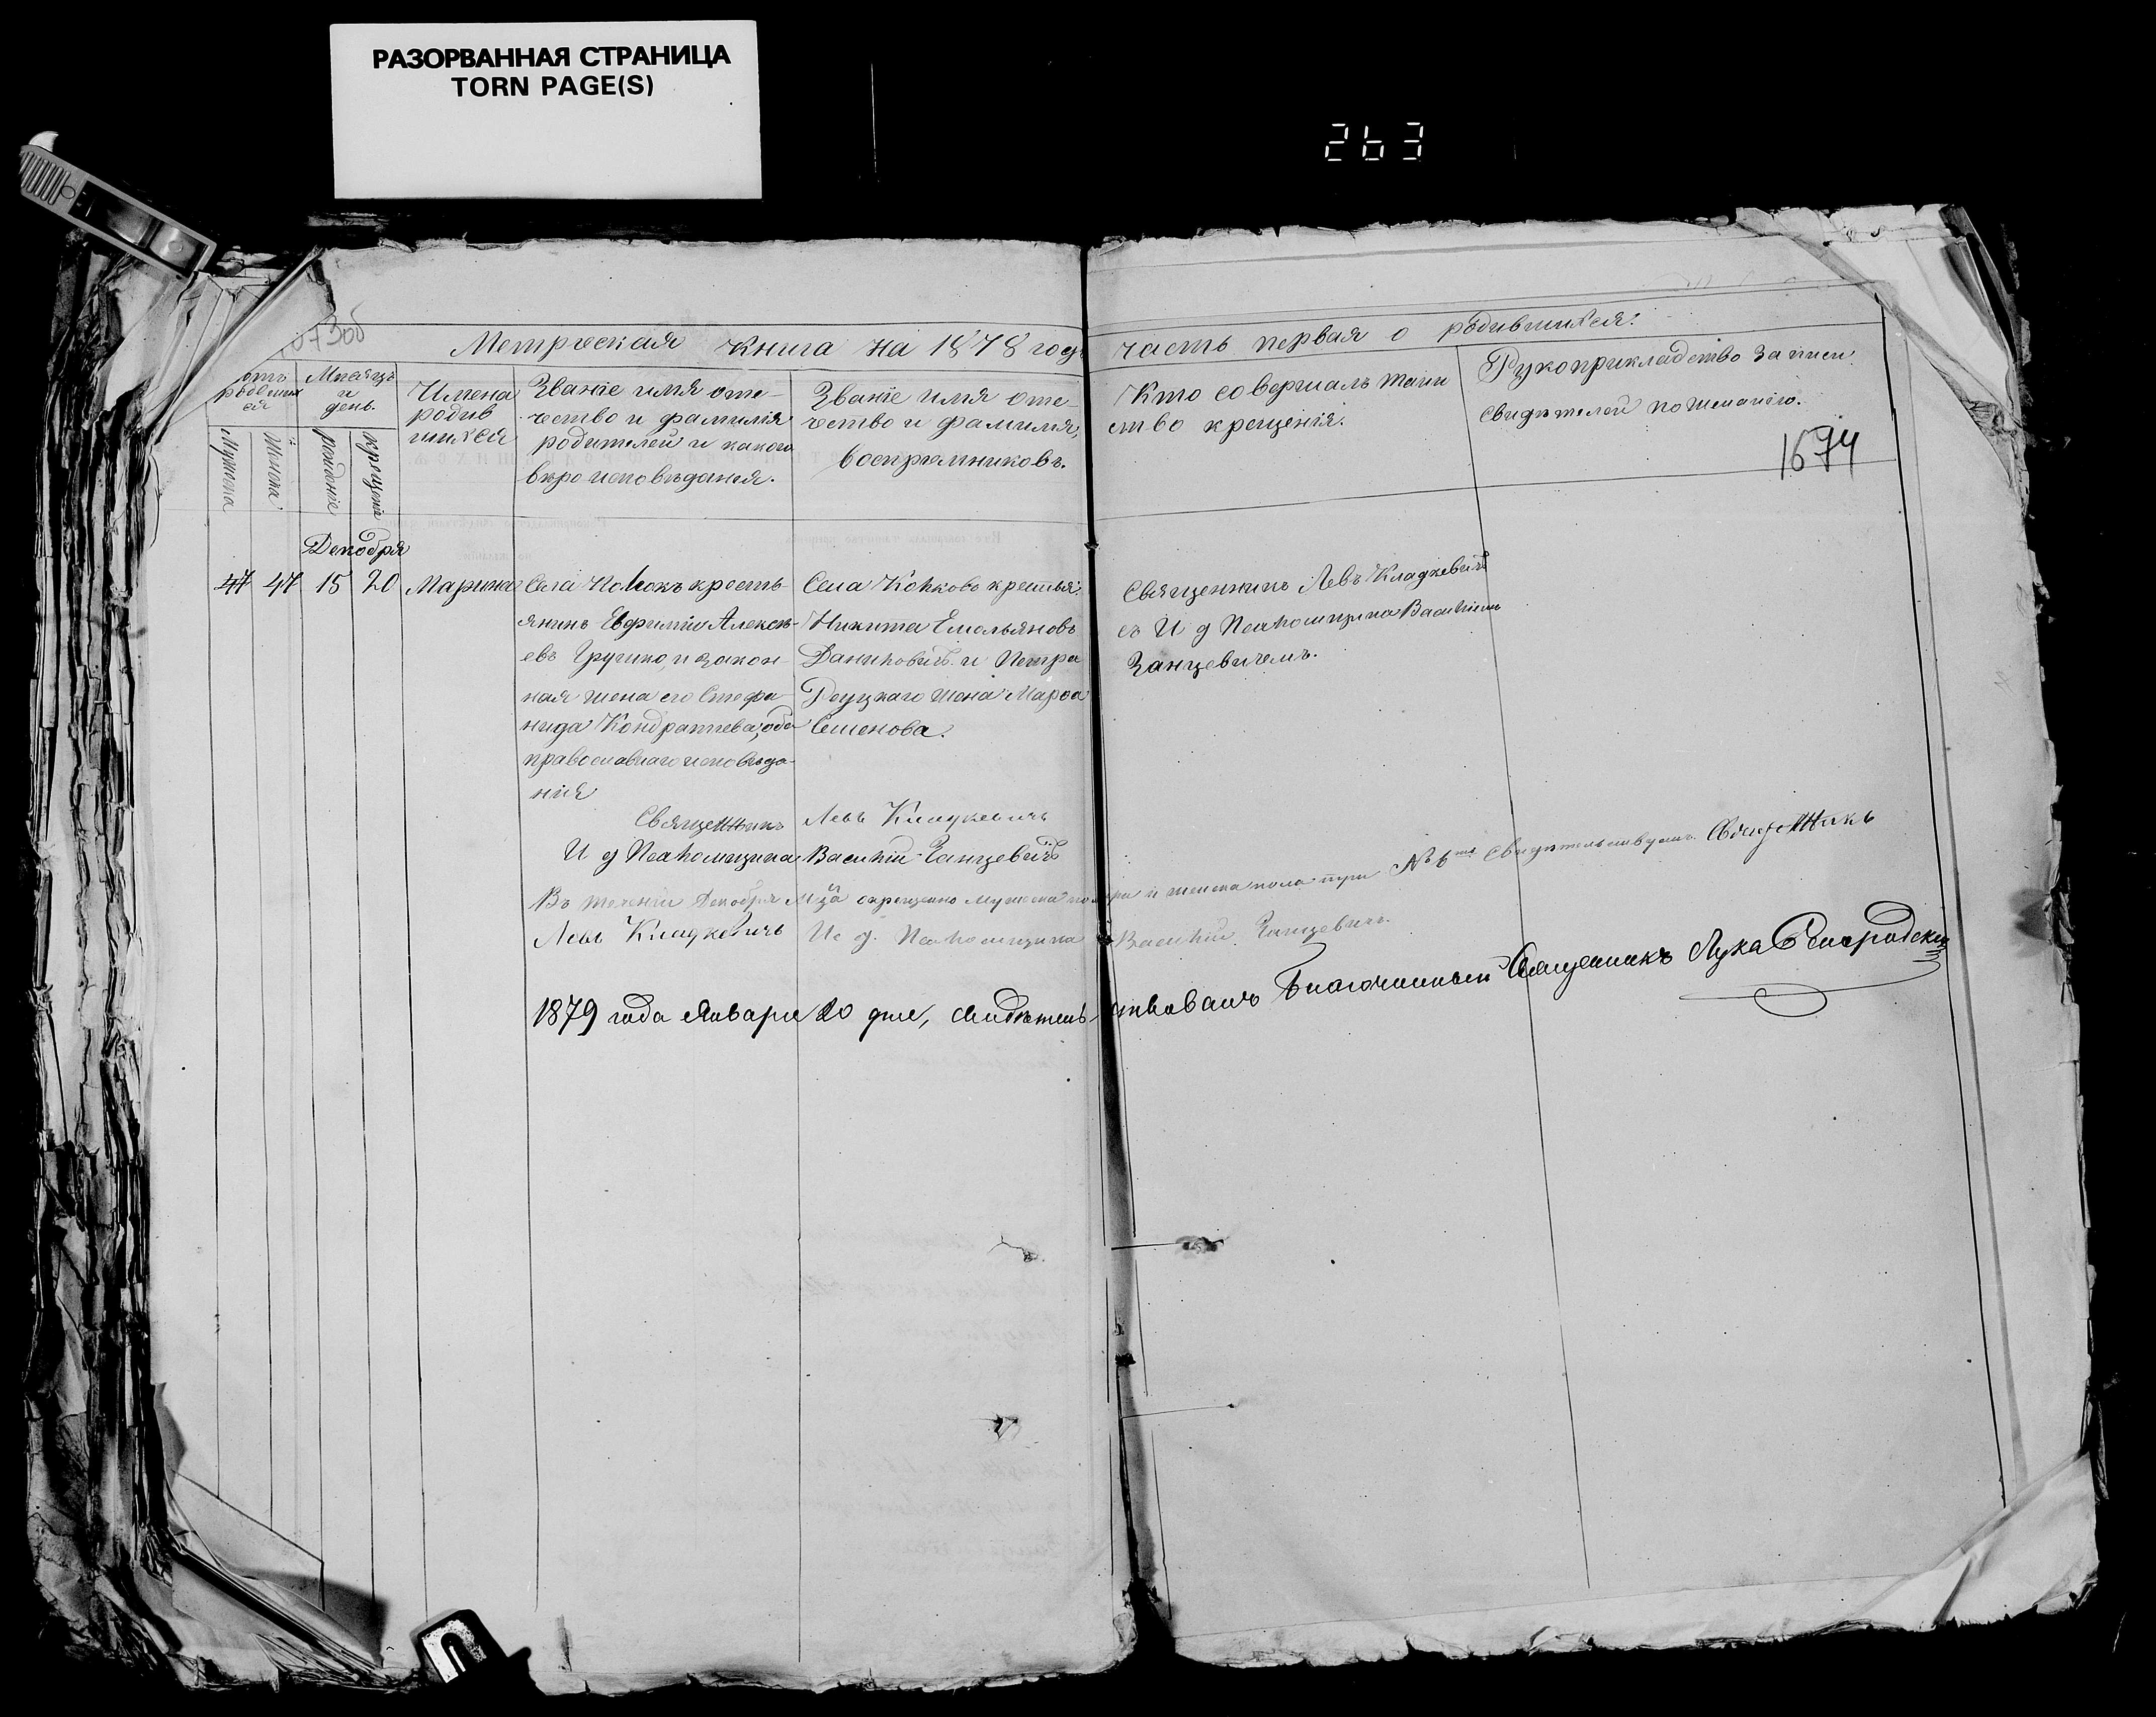 РАЗОРВАННАЯ СТРАНИЦА
TORN PAGE(S)
263
Метрическая книга на 1878 годъ часть первая о родившихся:
Мѣсяцъ и день.
Имена родив шихся
Званіе имя оте-
чество и фамилія
родителей и какого
вѣроисповѣданія.
Званіе имя оте-
чество и фамилія,
воспріемниковъ.
Кто совершалъ таин
ство крещенія.
Рукоприкладство записи
свидѣтелей по желанію.
1674
Мужска
Женска
рожденіе
крещеніе
Декабря
47 47 15 20 Марина
Села крестья-
янинъ Евфимій Алексѣ-
евъ и закон-
ная жена его Стефа-
нида Кондратіева, оба
православнаго исповѣда-
нія
Села крестья.
Никита Емельяновъ
и Петра
жена Марѳа
Семенова.
Священникъ Левъ Кладкевичъ
съ И д Псаломщика Василіем
Занцевичемъ.
Священникъ Левъ Кладкевичъ
И д Псаломщика Василій Занцевичъ
Въ теченіи Декабря М-ца окрещено мужска и женска пола три № 6 Свидѣтельствуемъ. Священникъ
Левъ Кладкевичъ И д. Псаломщика Василій Занцевичъ.
1879 года Января 20 дня, свидѣтельствовалъ Благочинный Священникъ Лука